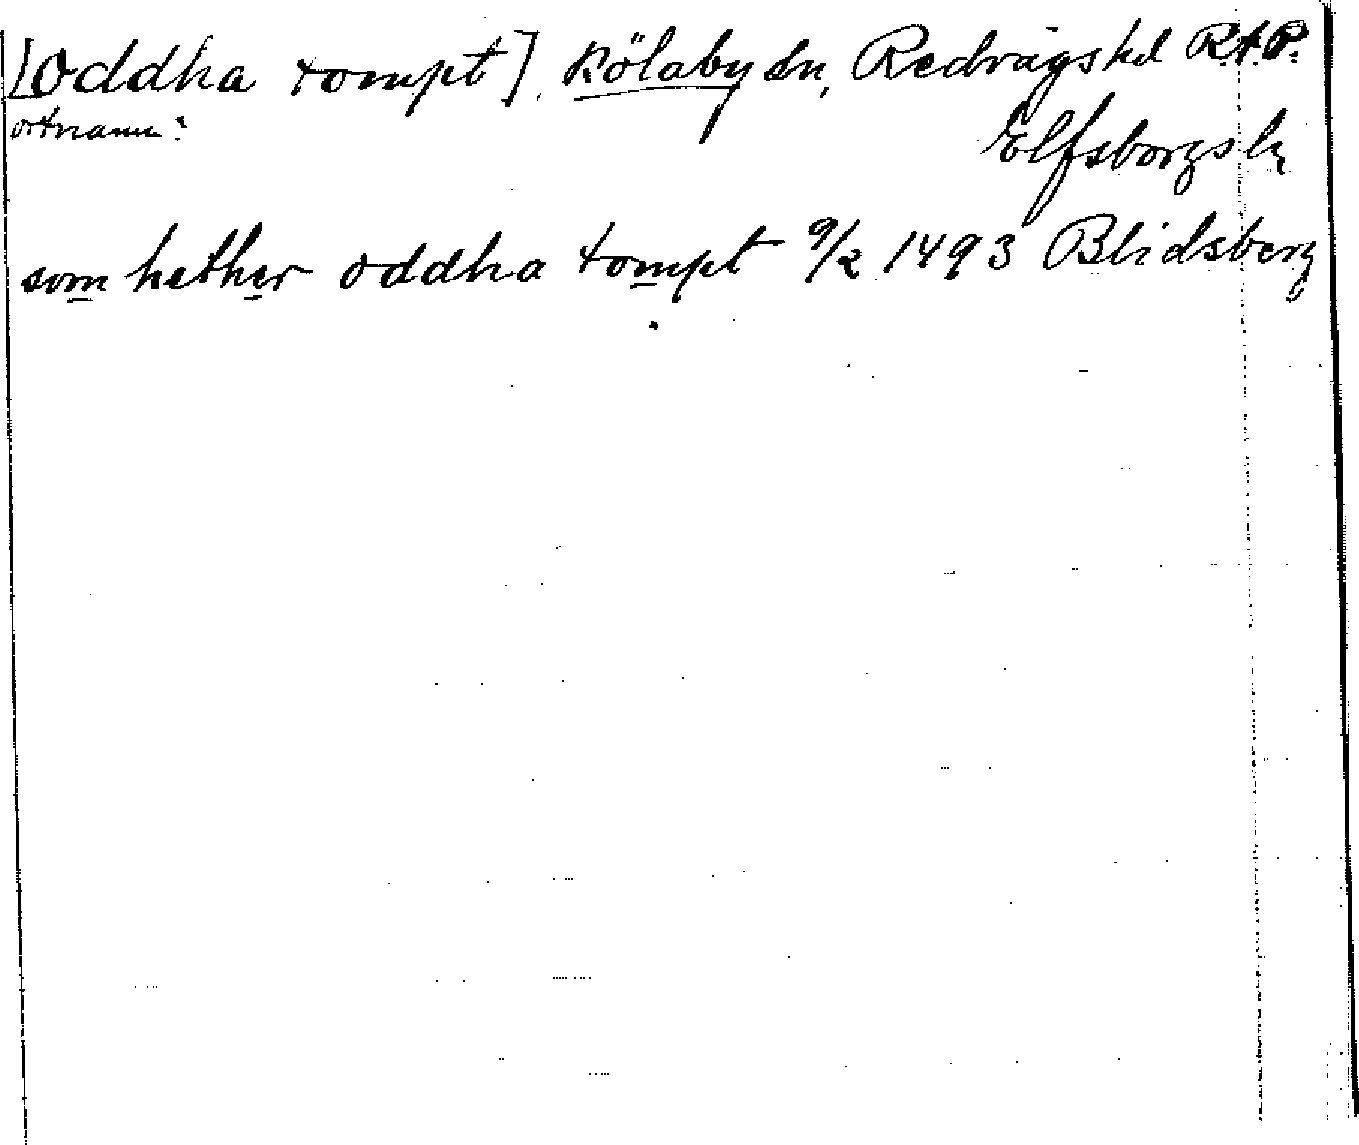 [Oddha tompt]. Kölaby sn, Redvägs hd R.A.P.
ortnamn? Elfsborgs l.
som hether oddha tompt 9/2 1493 Blidsberg